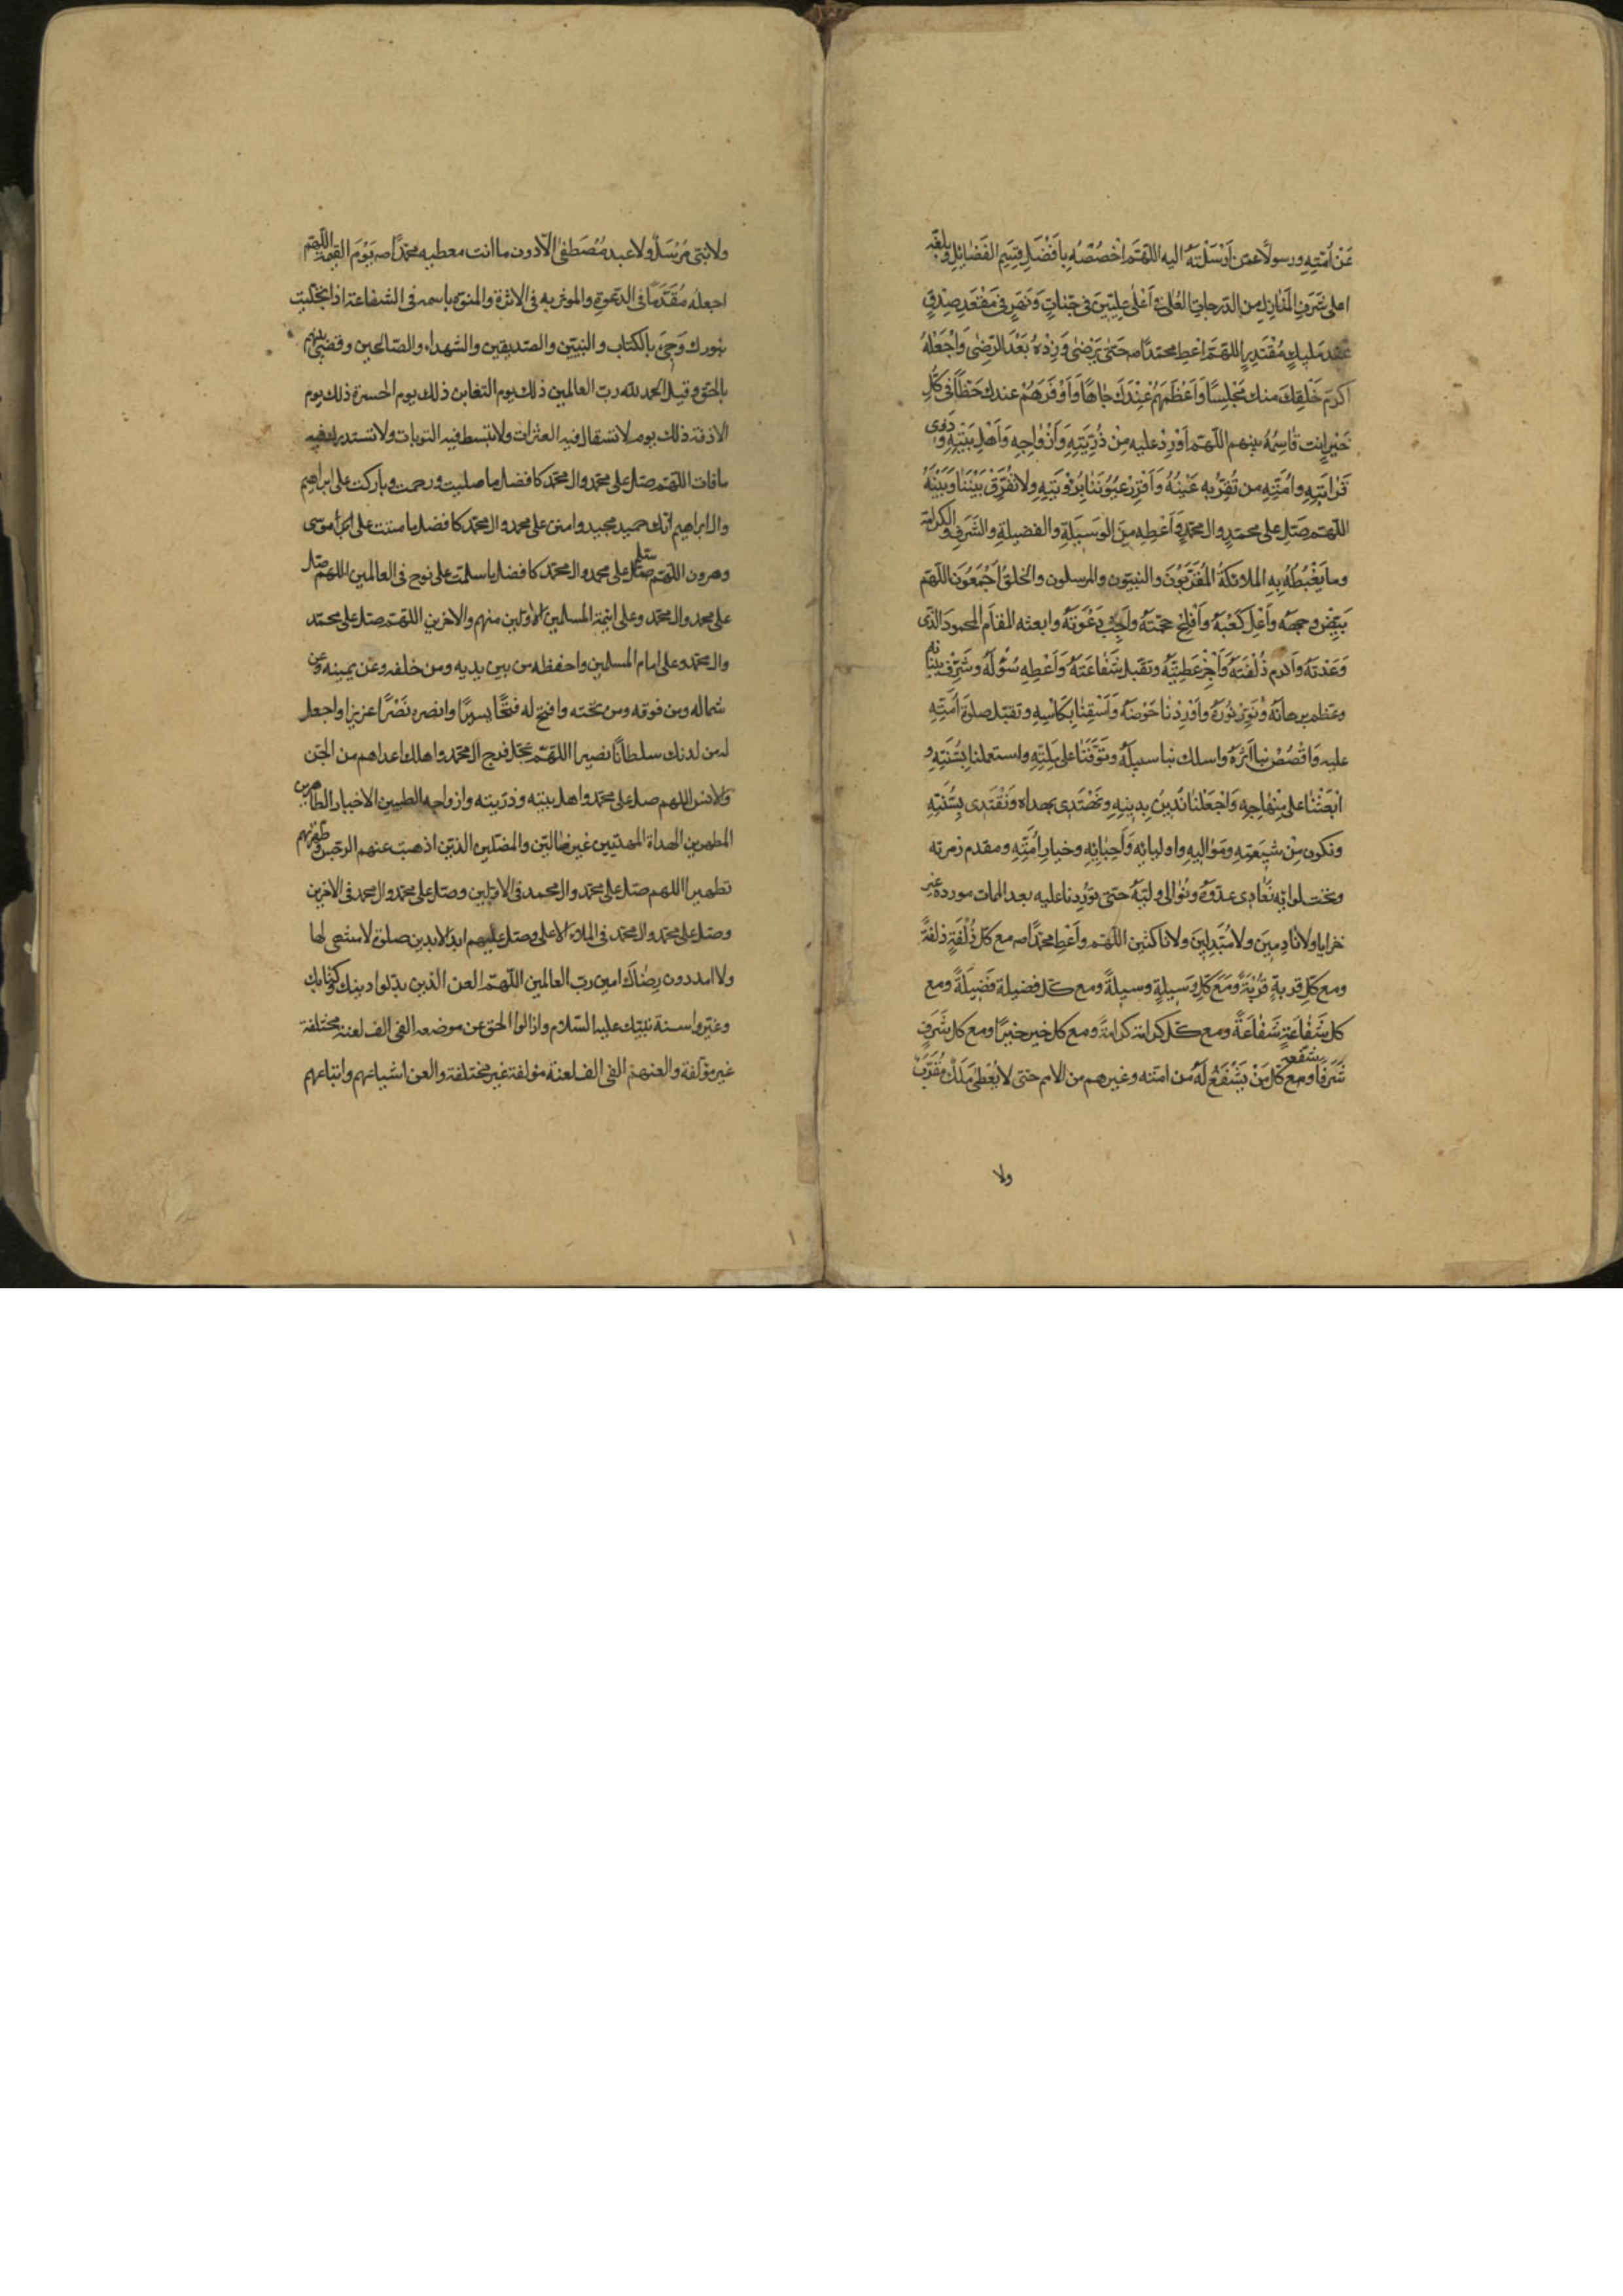 عَنْ اُمّتِهِ ورسولًا عمّن اَرْسَلْتَهُ اليه اللهمّ اخْصُصْهُ بِاَفْضَلِ قِسَمِ الفَضٰائِلِ وبلغه
اعلى شَرَفِ المَنٰازِلِ من الدّرجاتِ العُلىٰ فى اَعْلىٰ عِلِّيّينَ فى جَنّاتٍ وَنَهَرٍ فى مَقْعَدِ صِدْقٍ
عند مَليكٍ مُقْتَدِرٍ اللهمَّ اعْطِ محمّدًا صه حَتىّٰ يَرْضىٰ وَزِدْهُ بَعْدَ الرّضىٰ وَاجْعَلْهُ
اَكْرَمَ خَلْقِكَ منك مَجْلِسًا وَاَعْظَمَهُمْ عِنْدَكَ جٰاهًا وَاَوْفَرَهُمْ عندك حَظًّا فى كُلِّ
خَيْرٍ انت قٰاسِمُهُ بينهم اللّهم اَوْرِدْ عليه مِنْ ذُرّيَتِهِ وَاَزْوٰاجِهِ وَاَهْلِ بَيْتِهِ وَذوى
قَرٰابَتِهِ وامَّتِهِ من تُقِرّ بِهِ عَيْنُهُ وَاَقْرِرْ عيُوُنَنٰا بِرُؤْيَتِهِ ولا تُفَرِّقْ بَيْنَنٰا وَبَيْنَهُ
اللّهم صَلّ على محمّدٍ وال محمّدٍ وَاَعْطِهِ مِنَ الوَسيلَةِ والفضيلةِ والشَرَفِ والكرامة
وما يَغْبِطُهُ بِهِ الملائكةُ المُقَرَّبُونَ والنبيّون والمرسلون والخلقُ اَجْمَعُونَ اللهمّ
بَيّضْ وجهه وأعْلِ كَعْبَهُ وأَفْلِجْ حجّتهُ وأَجِبْ دَعْوَتَهُ وابعثه المقٰامَ المحمودَ الّذى
وَعَدْتَهُ وأكرم زُلْفَتَهُ وَاَجْزِلْ عَطِيَّتَهُ وتقبل شَفٰاعَتَهُ وَاَعْطِهِ سُؤْلَهُ وشَرّفْ بنيانه
وعظم برهانه وَنَوّرْ نُورَهُ وَاَوْرِدْنٰا حَوْضَهُ وَاَسْقِنٰا بِكَاْسِهِ وتقبّل صلوة اُمّتِهِ
عليه وَاقْصُصْ بنا اَثَرَهُ واسلك بنا سبيلَهُ وتَوَفَّنٰا على مِلّتِهِ واستعملنا بِسُنّتِهِ و
ابْعَثْنٰا على مِنْهٰاجِهِ وَاجْعَلْنٰا نَدينُ بِدينِهِ ونَهْتَدى بهداه وَنَقْتَدى بِسُنّتِهِ
ونكون مِنْ شيعَتِهِ ومَوٰاليهِ واوليائِهِ وَاَحِبّٰائِهِ وخيارِ اُمّتِهِ ومقدم زمرته
وتحت لوائِهِ نُعٰادى عدوّهُ ونُوٰالى وليّهُ حتىّ تورِدنا عليه بعد الممات مورده غير
خزايا ولا نٰادِمينَ ولا مُبَدّلينَ ولا ناكثين اللّهم وأعْطِ محمّدًا صه مع كلّ زُلْفَةٍ زلفةً
ومع كلّ قربةٍ قُرْبَةً وَمَعَ كلّ وَسيلةٍ وسيلةً ومع كلّ فضيلة فَضيلَةً ومع
كل شَفٰاعَةٍ شَفٰاعَةً ومع كلّ كرامة كرامةً ومع كل خير خيرًا ومع كل شَرَفٍ
شَرَفًا وشفعه مع كلّ مَنْ يَشْفَعُ لَهُ من امّته وغيرهم من الامم حتى لا يُعْطىٰ مَلَكٌ مُقَرّبٌ
ولا
ولا نبىّ مُرْسَلٌ ولا عبد مُصْطَفىٰ الّا دون ما انت معطيه محمّدًا صه يَوْمَ القيٰمة اللّهم
اجعله مُقَدّمًا فى الدّعوة والموثر به فى الاثرة والمنوّه باسمه فى الشفاعة اذا تجلّيت
بنورك وَجىءَ بالكتاب والنبيّين والصدّيقين والشهداء والصّالحين وقضى بينهم
بالحقّ وقيل الحمد لله ربّ العالمين ذلك يوم التغابن ذلك يوم الحسرة ذلك يوم
الازفة ذلك يوم لا تستقال فيه العثرات ولا تبسط فيه التوبات ولا تستدرك فيه
ما فات اللّهم صلّ على محمّد وال محمّد كافضل ما صليت ورحمت وباركت على ابراهيم
وال ابراهيم انّك حميد مجيد وامنن على محمد وال محمّد كافضل ما مننت على موسى
وهرون اللّهم سلم على محمد وال محمّد كافضل ما سلمت على نوح فى العالمين اللهم صلّ
على محمد وال محمّد وعلى ائمّة المسلمين الاوّلين منهم والاخرين اللهم صل على محمّد
وال محمّد وعلى امام المسلمين واحفظه من بين يديه ومن خلفه وعن يمينه وعن
شماله ومن فوقه ومن تحته وافتح له فتحًا يسيرًا وانصره نَصْرًا عزيزا واجعل
له من لدنك سلطانًا نصيرا اللهمّ عجّل فرج ال محمّد واهلك اعداهم من الجن
والانس اللهم صل على محمّد واهل بيته وذرّيته وازواجه الطيبين الاخيار الطاهرين
المطهرين الهداة المهديّين غير ضالّين والمضلين الذّين اذهبت عنهم الرّجس وطهّرتهم
تطهيرا اللهم صلّ على محمّد وال محمد فى الاوّلين وصلّ على محمّد وال محمد فى الاخرين
وصلّ على محمّد وال محمّد فى الملاء الاعلى وصلّ عليهم ابد الابدين صلوة لا منتهى لها
ولا امد دون رضاك امين ربّ العالمين اللّهمّ العن الذين بدّلوا دينك وكتابك
وغيّروا سنة نبيّك عليه السّلام وازالوا الحق عن موضعه الفى الف لعنة مختلفة
غير مؤتلفة والعنهم الفى الف لعنة مؤتلفة غير مختلفة والعن اشياعهم واتباعهم